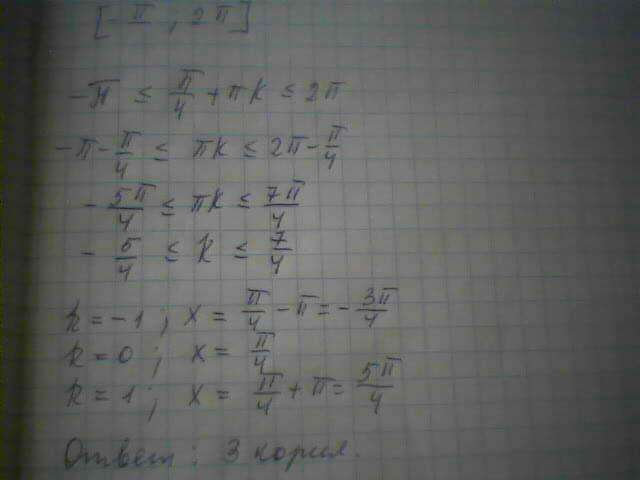 [-π, 2π]
-π ≤ π/4 + πk ≤ 2π
-π - π/4 ≤ πk ≤ 2π - π/4
-5π/4 ≤ πk ≤ 7π/4
-5/4 ≤ k ≤ 7/4
k = -1; x = π/4 - π = -3π/4
k = 0; x = π/4
k = 1; x = π/4 + π = 5π/4
Ответ: 3 корня.